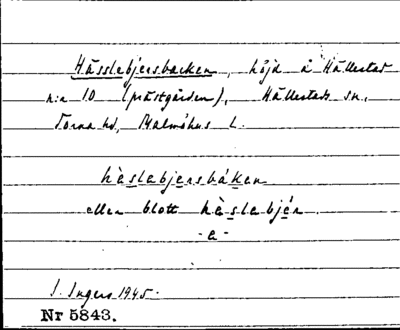 Hässlebjersbacken, höjd å Hällestad
n:r 10 (prästgården), Hällestads sn,
Torna hd, Malmöhus L.
hèslebjersbáken
eller blott hèslebjér
-a-
I. Ingers 1945.
Nr 5843.